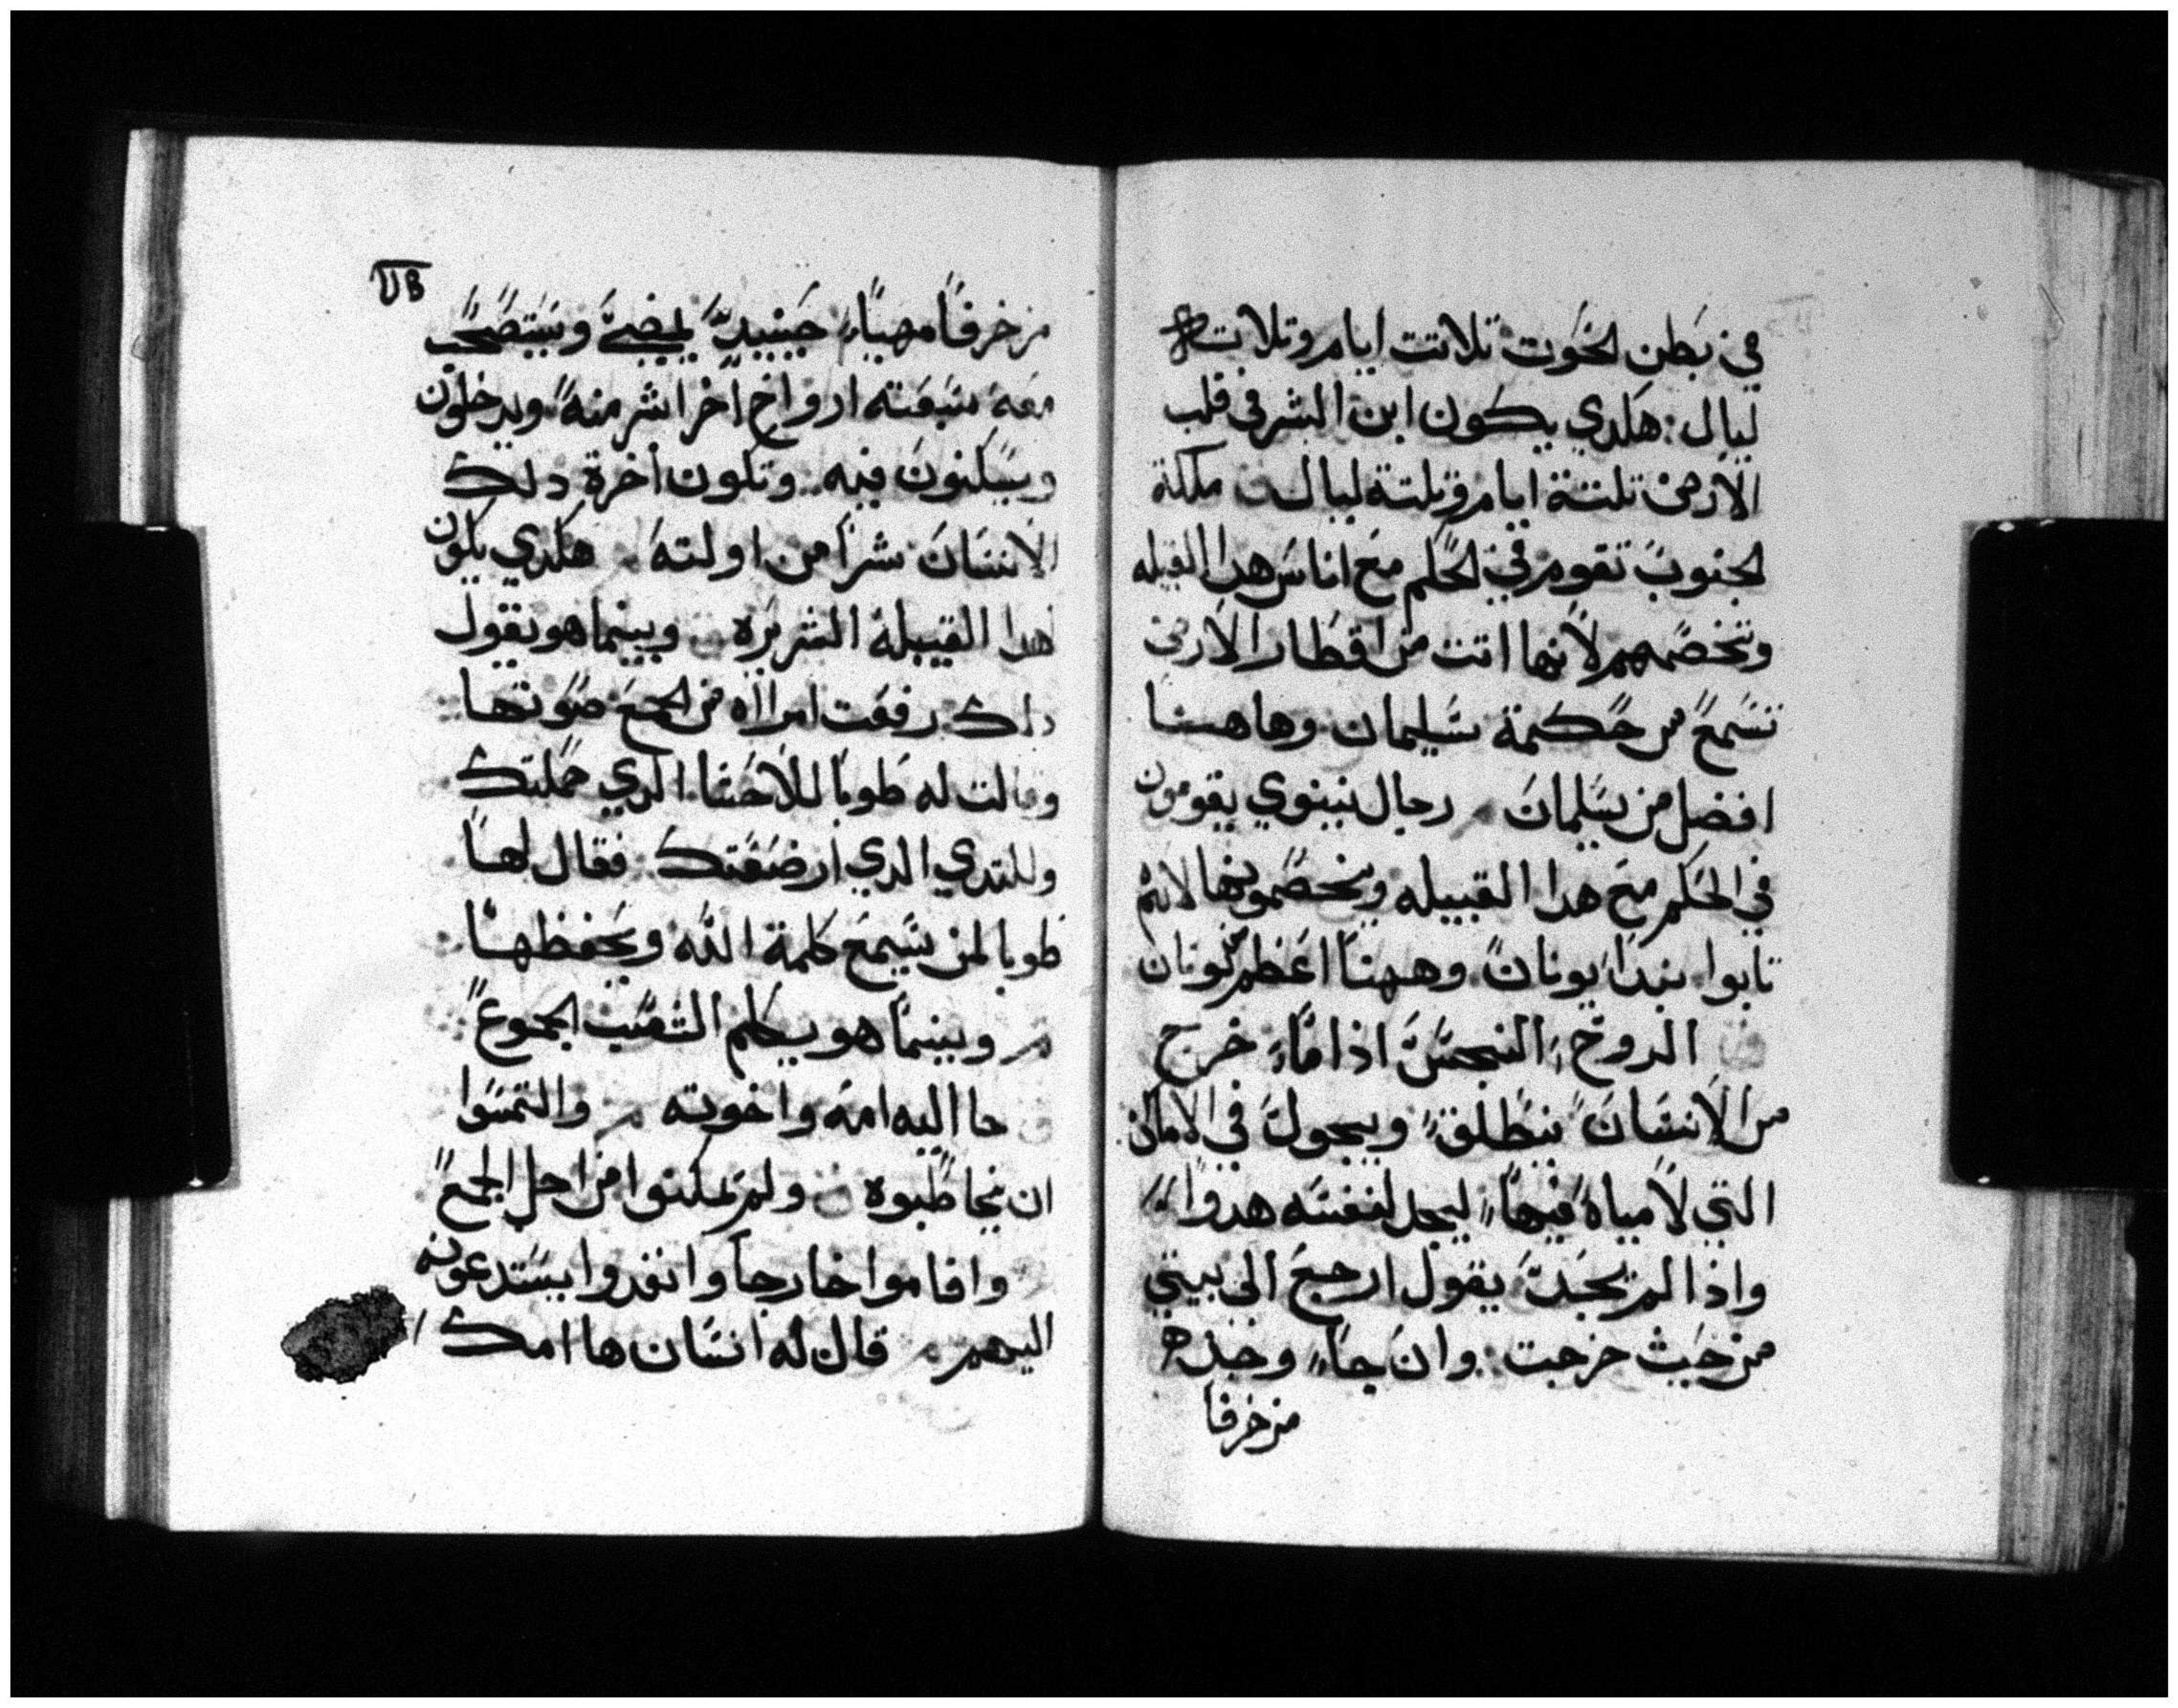 في بطن الحوت تلاتت ايام وتلات
ليال: هكدي يكون ابن البشر في قلب
الارض تلتة ايام وتلتة ليال ملكة
الجنوب تقوم في الحكم مع اناس هدا القبيله
وتخصمهم لانها اتت من اقطار الارض
تسمع من حكمة سليمان وهاهنا
افضل من سليمان رجال نينوي يقومون
في الحكم مع هدا القبيله ويخصمونها لانهم
تابوا بندا يونان وههنا اعظم من يونان
الروح النجس اذا ما خرج
من الانسان ينطلق ويجول في الاماكن
التي لا مياة فيها ليجد لنفسه هدوا
واذا لم يجد يقول ارجع الى بيتي
من حيث خرجت وان جاء وجده
مزخرفا
مزخرفا مهياء حينيد يمضي ويستصحب
معه سبعته ارواح اخر اشر منه ويدخلون
ويسكنون فيه وتكون اخرة دلك
الانسان شرا من اولته هكدي يكون
لهدا القبيلة الشريره وبينما هو يقول
دلك رفعت امرااه من الجمع صوتها
وقالت له طوبا للاحشا الدي حملتك
وللتدي الدي ارضعتك فقال لها
طوبا لمن يسمع كلمة الله ويحفظها
وبينما هو يكلم الشعب الجموع
جا اليه امه واخوته والتمسوا
ان يخاطبوه ولم يمكنوا من اجل الجمع
واقاموا خارجا وانفدوا يستدعونه
اليهم قال له انسان ها امك